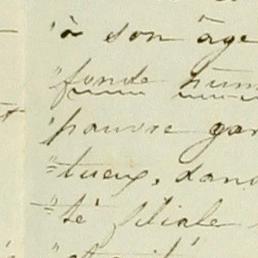 "à son âge
"fonde hum
"pauvre gar
"tueux, dans
"té filiale